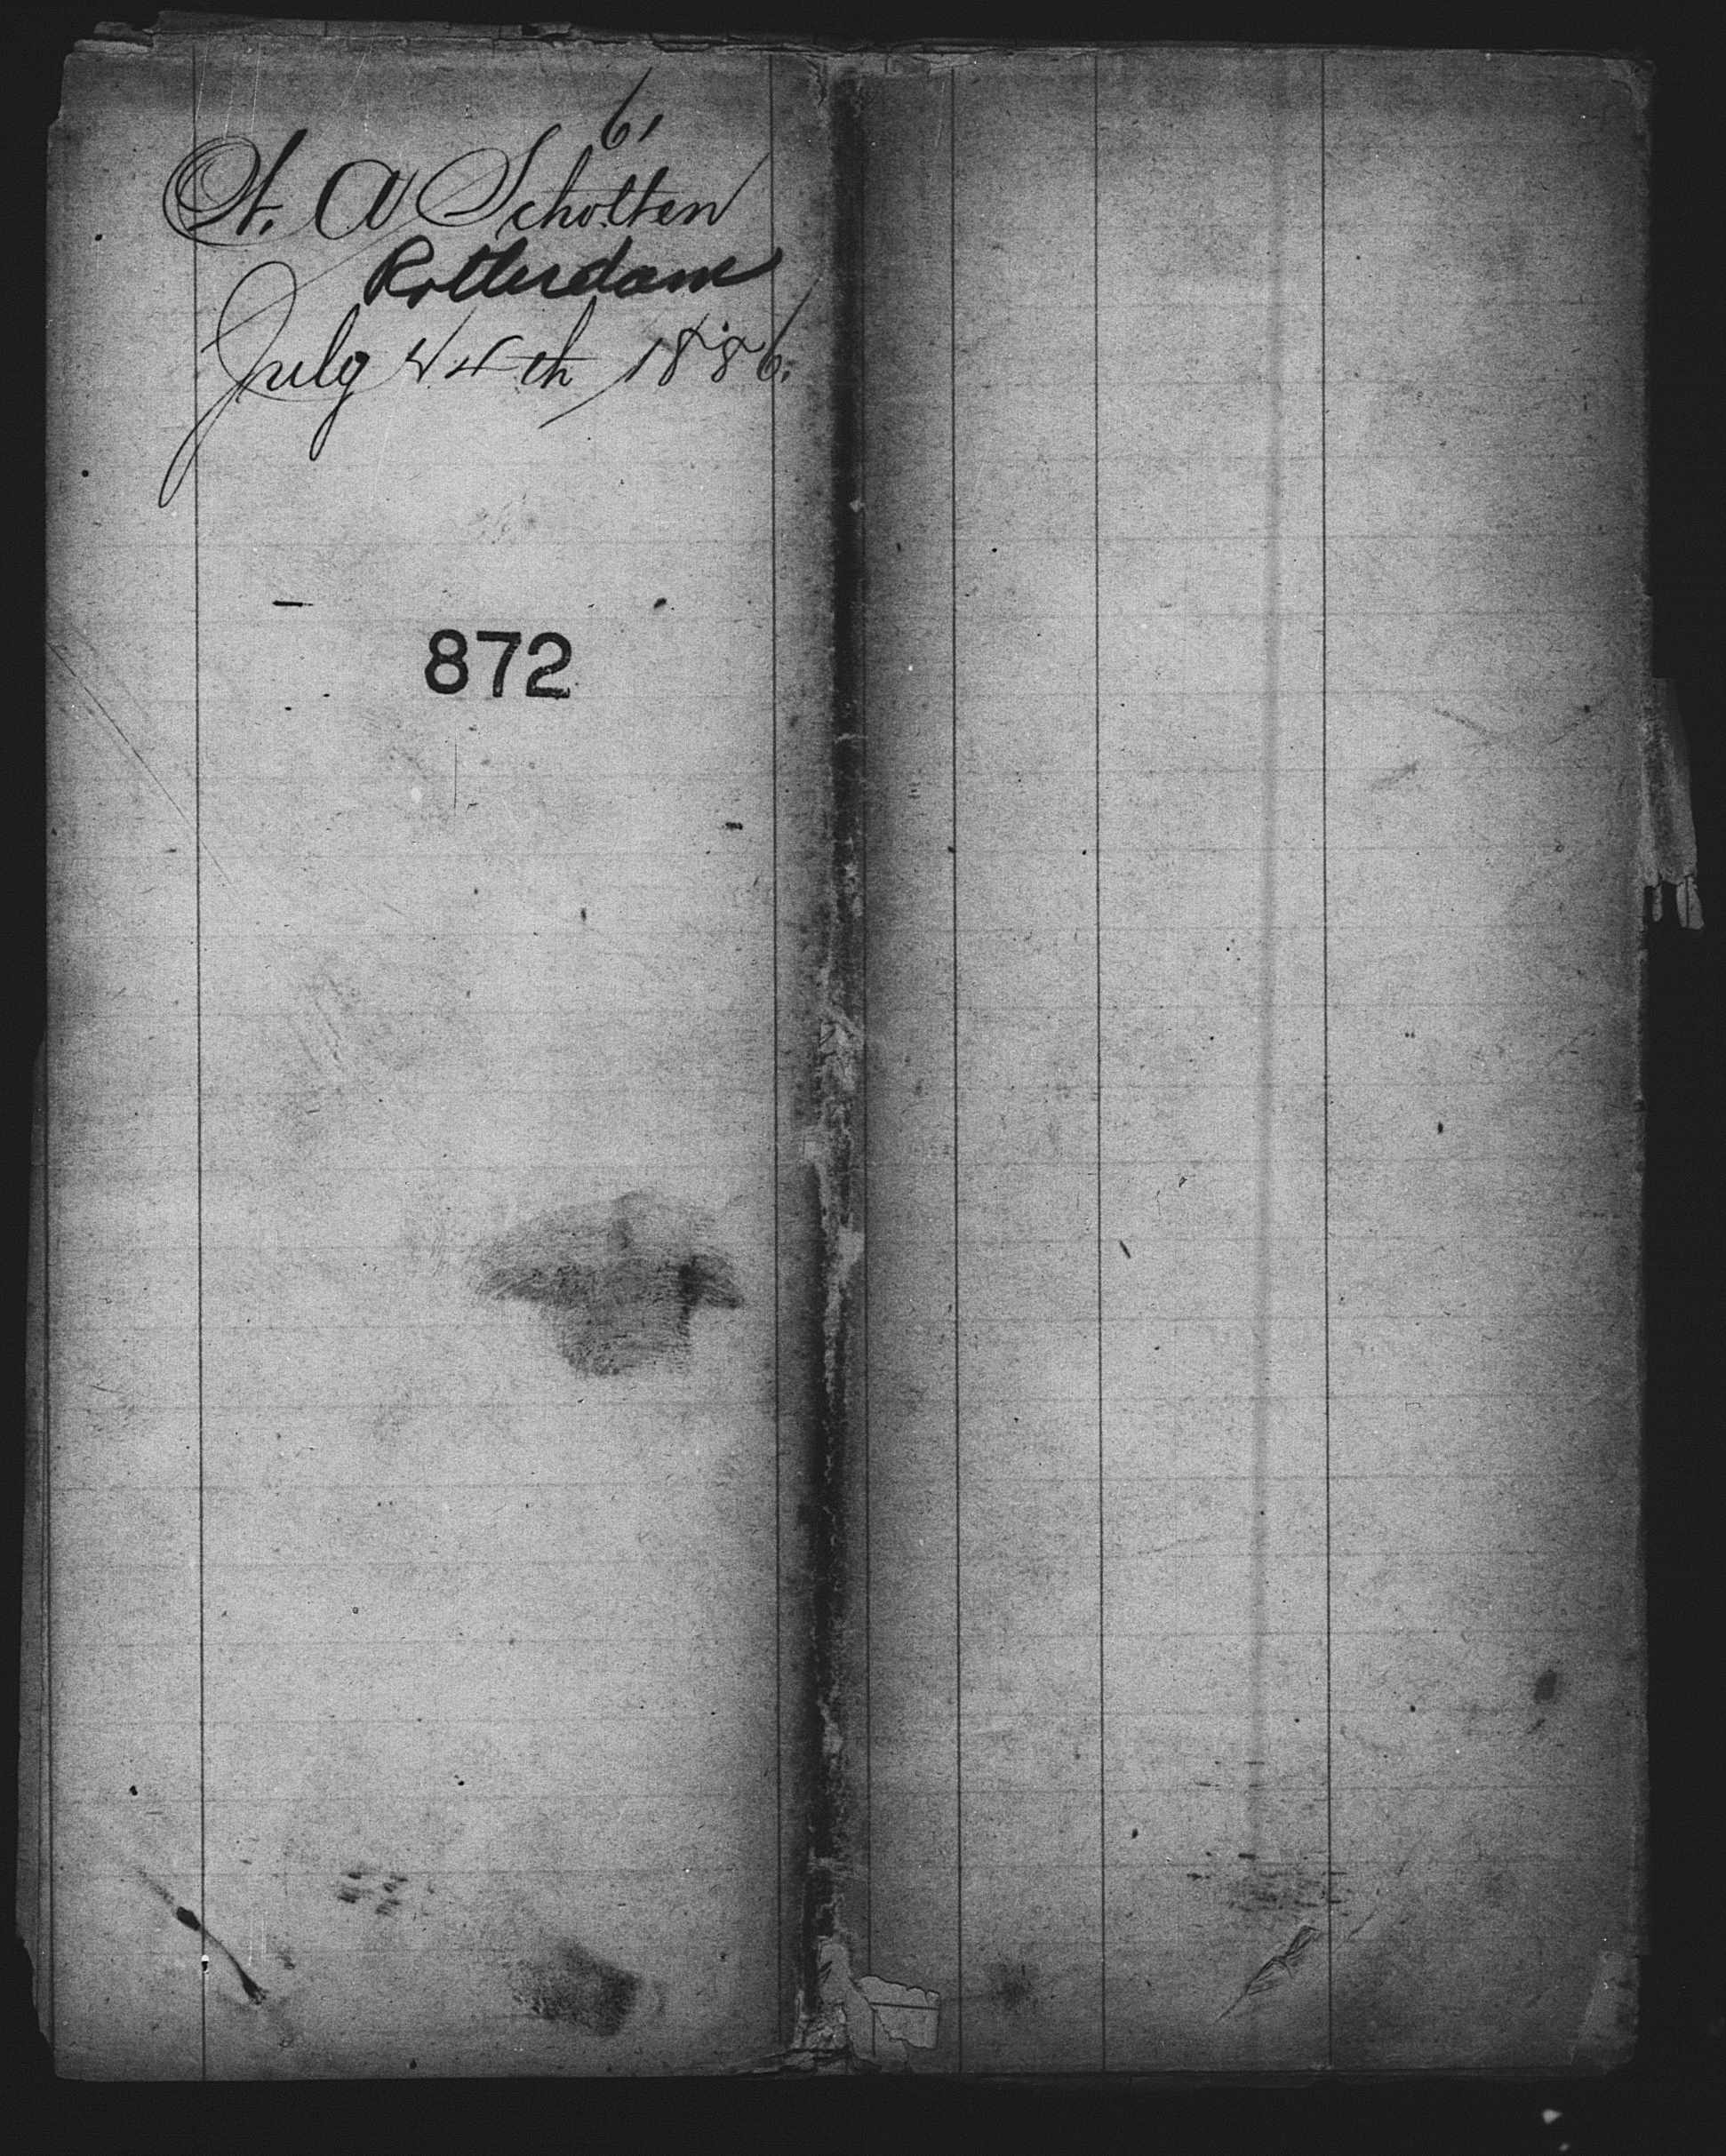 61
W. A Scholten
Rotterdam
July 24th 1886.
872